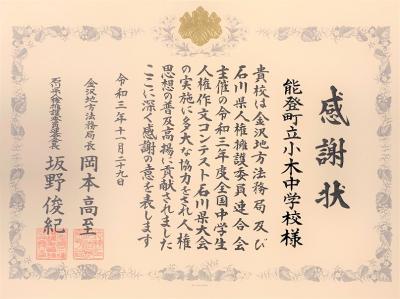 感謝状
能登町立小木中学校様
貴校は金沢地方法務局及び
石川県人権擁護委員連合会
主催の令和三年度全国中学生
人権作文コンテスト石川県大会
の実施に多大な協力をされ人権
思想の普及高揚に貢献されました
ここに深く感謝の意を表します
令和三年十一月二十九日
金沢地方法務局長 岡本高至
石川県人権擁護委員連合会長 坂野俊紀